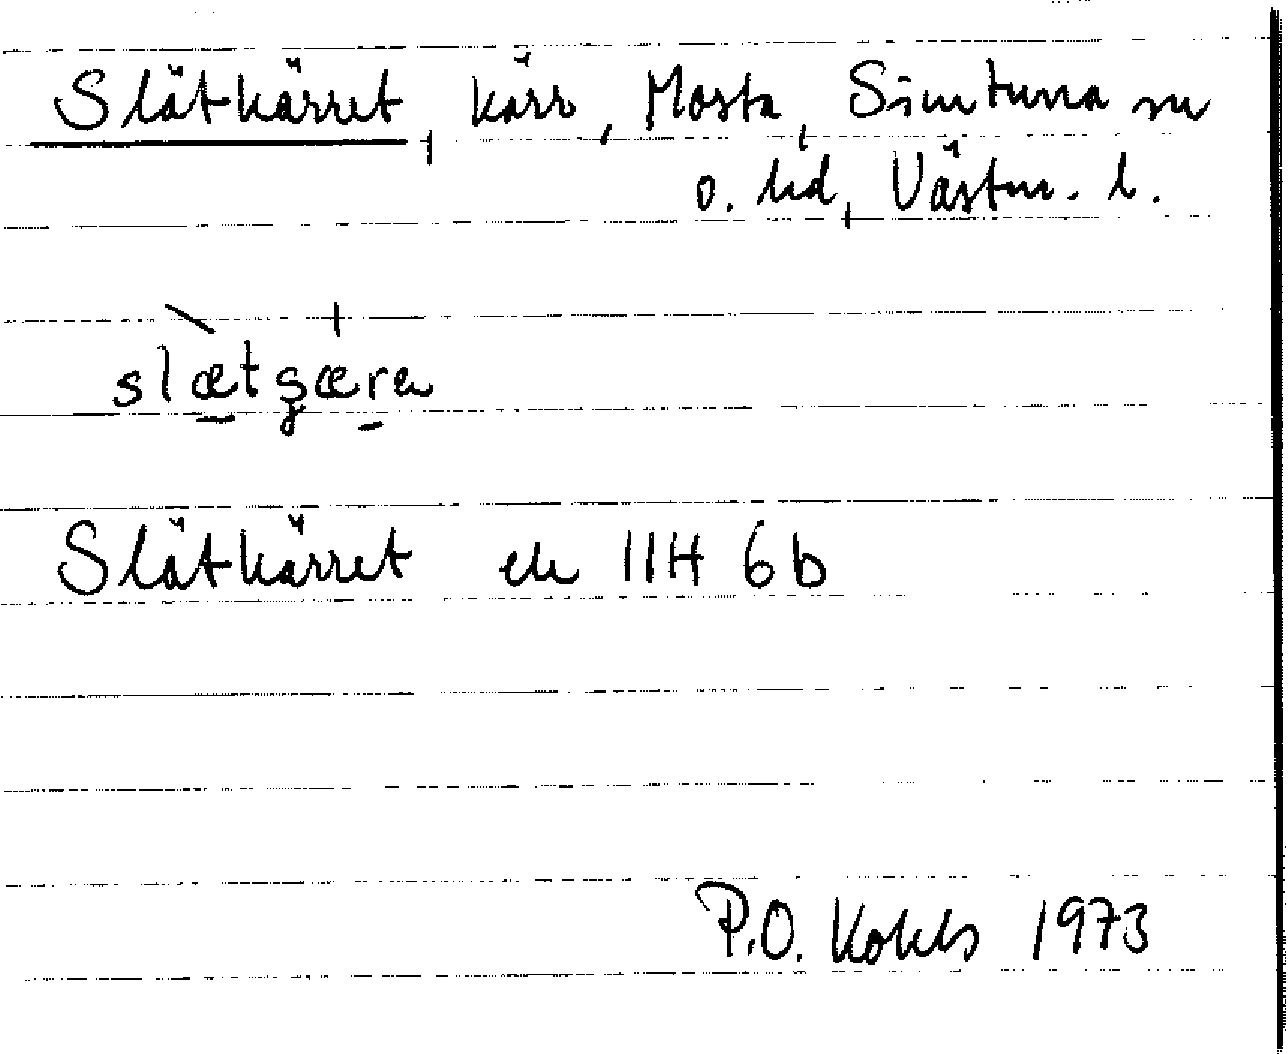 Slätkärret, kärr, Mosta, Simtuna sn
o. hd, Västm. l.
slætgæra
Slätkärret ek 11H 6b
P.O. 1973